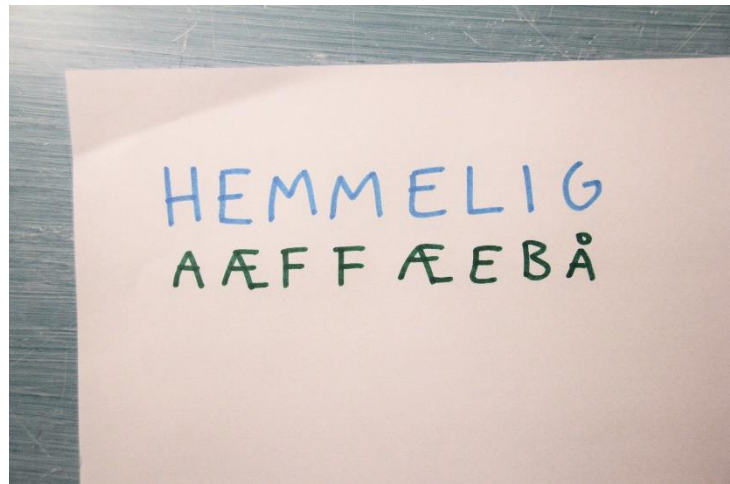 HEMMELIG
AÆFFÆEBÅ